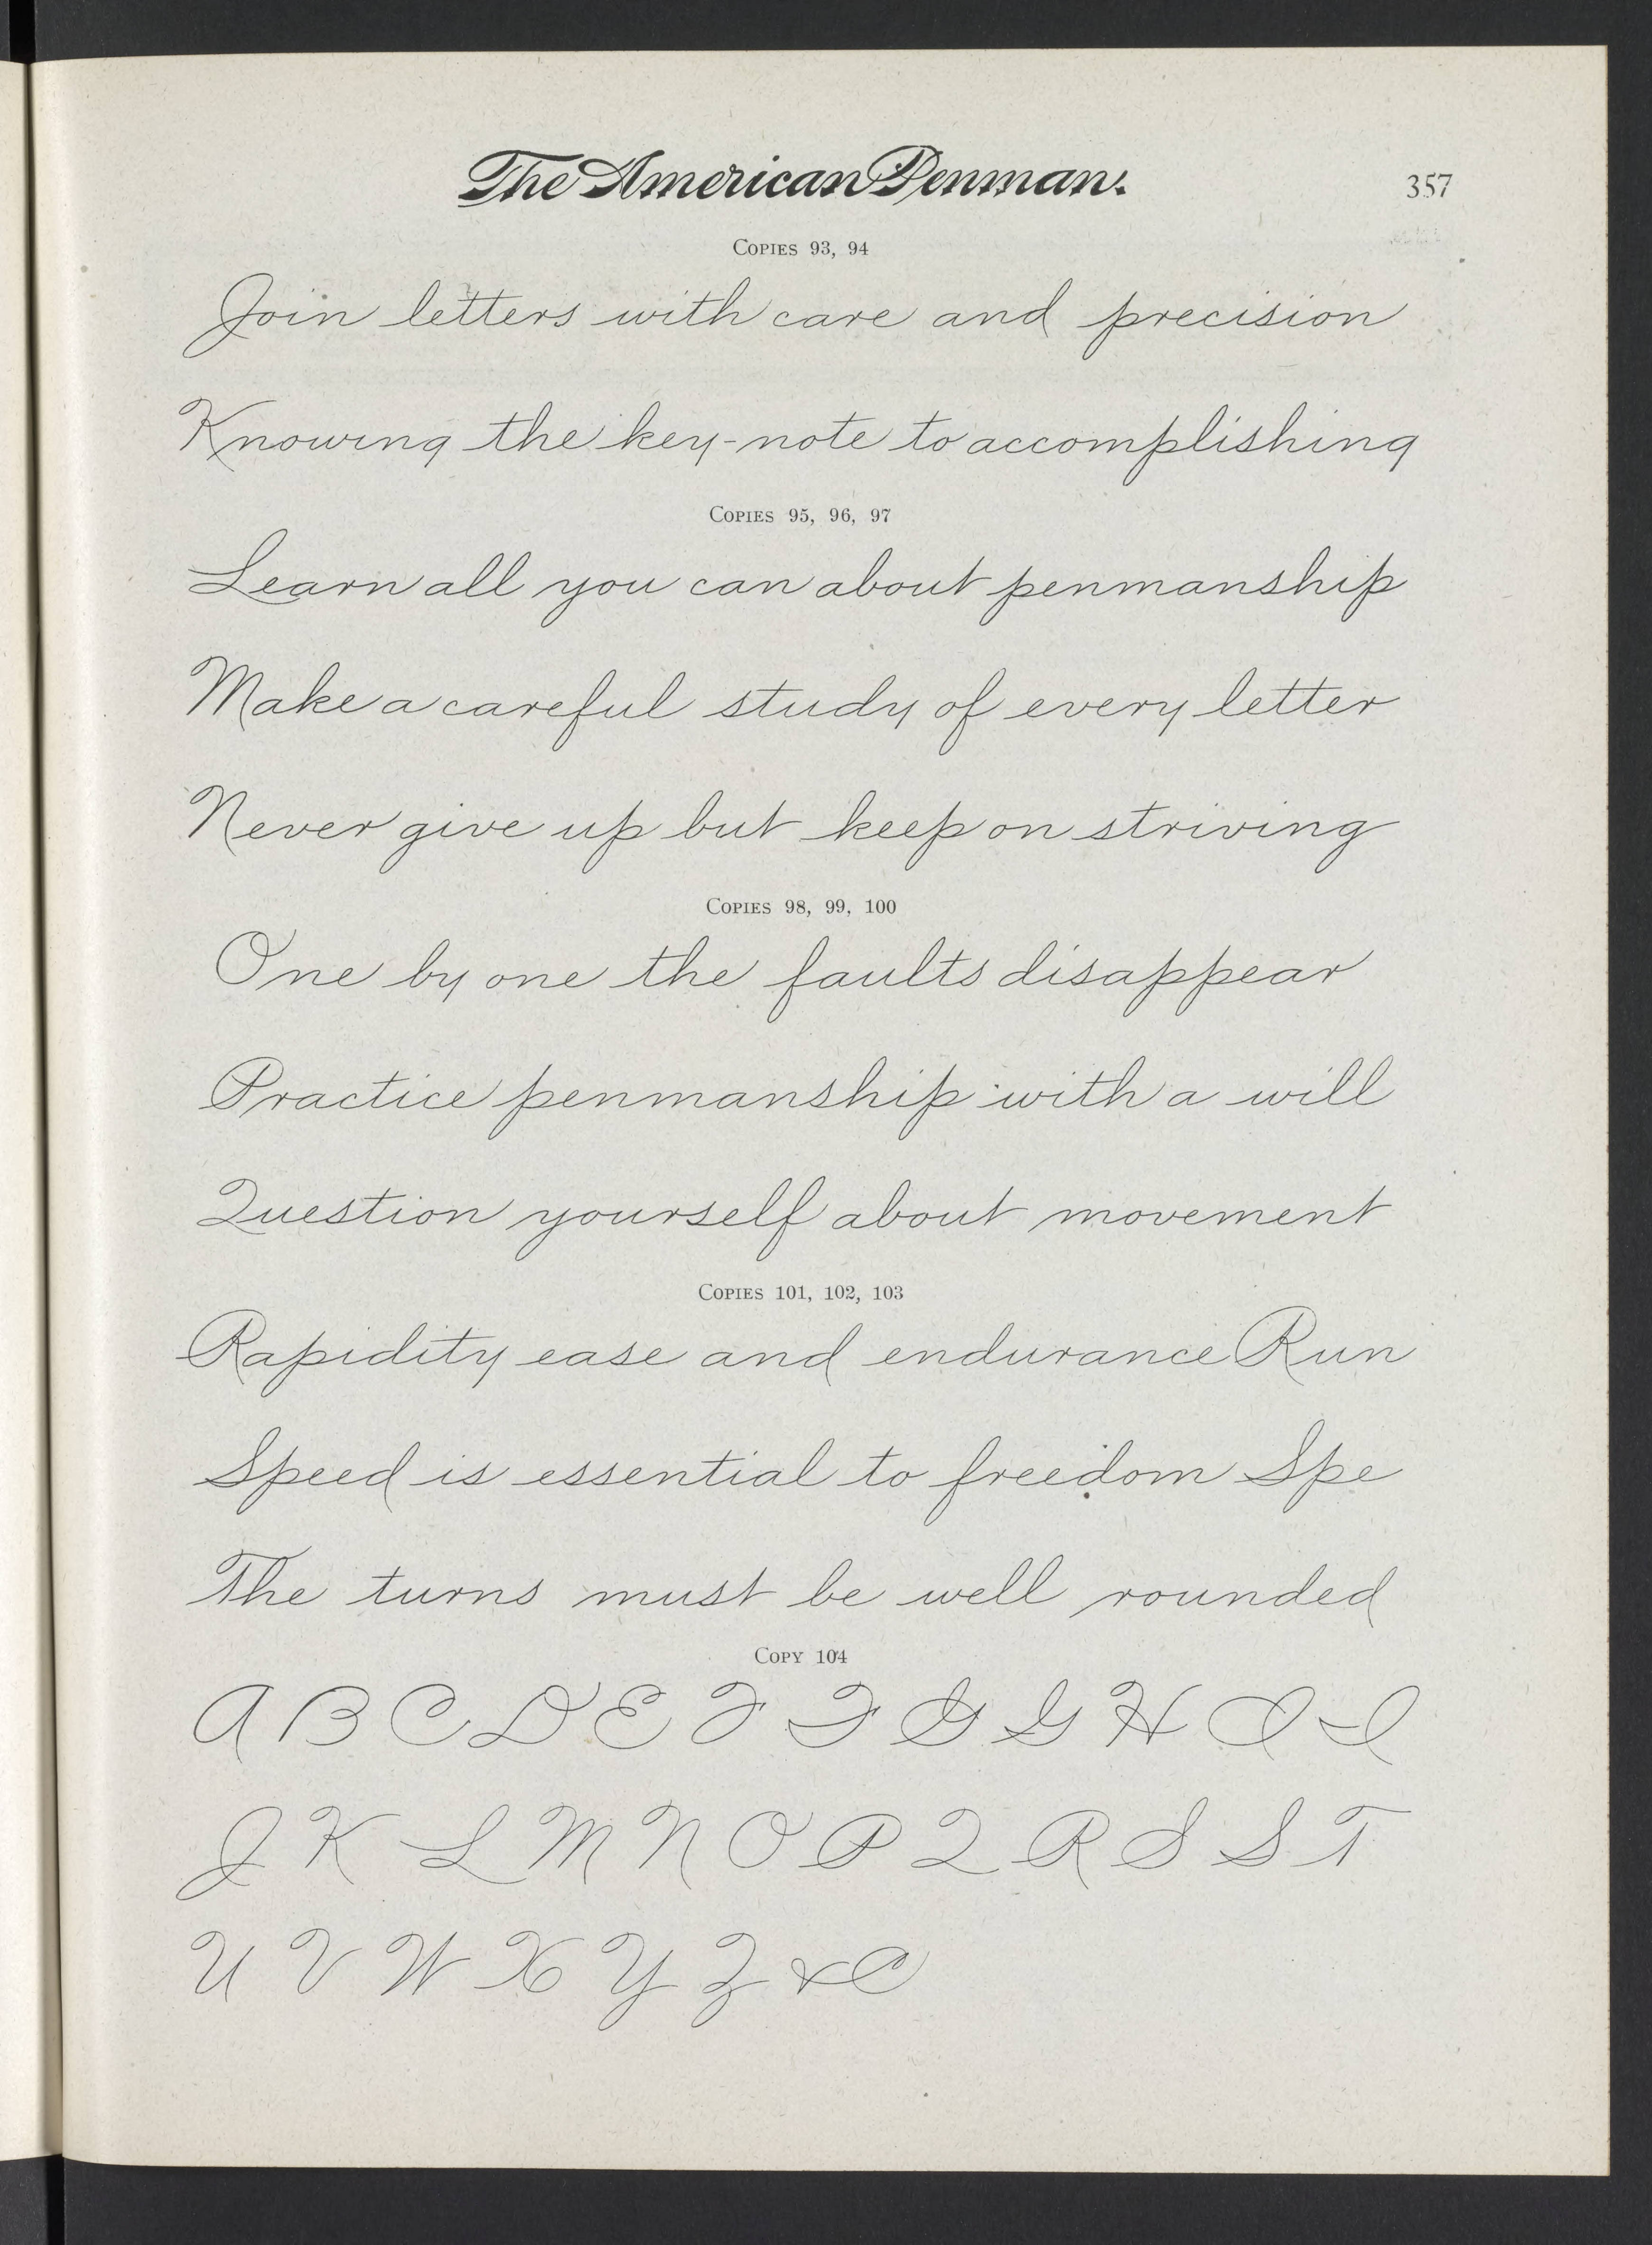 The American Penman.
357
Copies 93, 94
Join letters with care and precision
Knowing the key-note to accomplishing
Copies 95, 96, 97
Learn all you can about penmanship
Make a careful study of every letter
Never give up but keep on striving
Copies 98, 99, 100
One by one the faults disappear
Practice penmanship with a will
Question yourself about movement
Copies 101, 102, 103
Rapidity ease and endurance Run
Speed is essential to freedom Spe
The turns must be well rounded
Copy 104
A B C D E F F G G H I I
J K L M N O P Q R S S T
U V W X Y Z & C